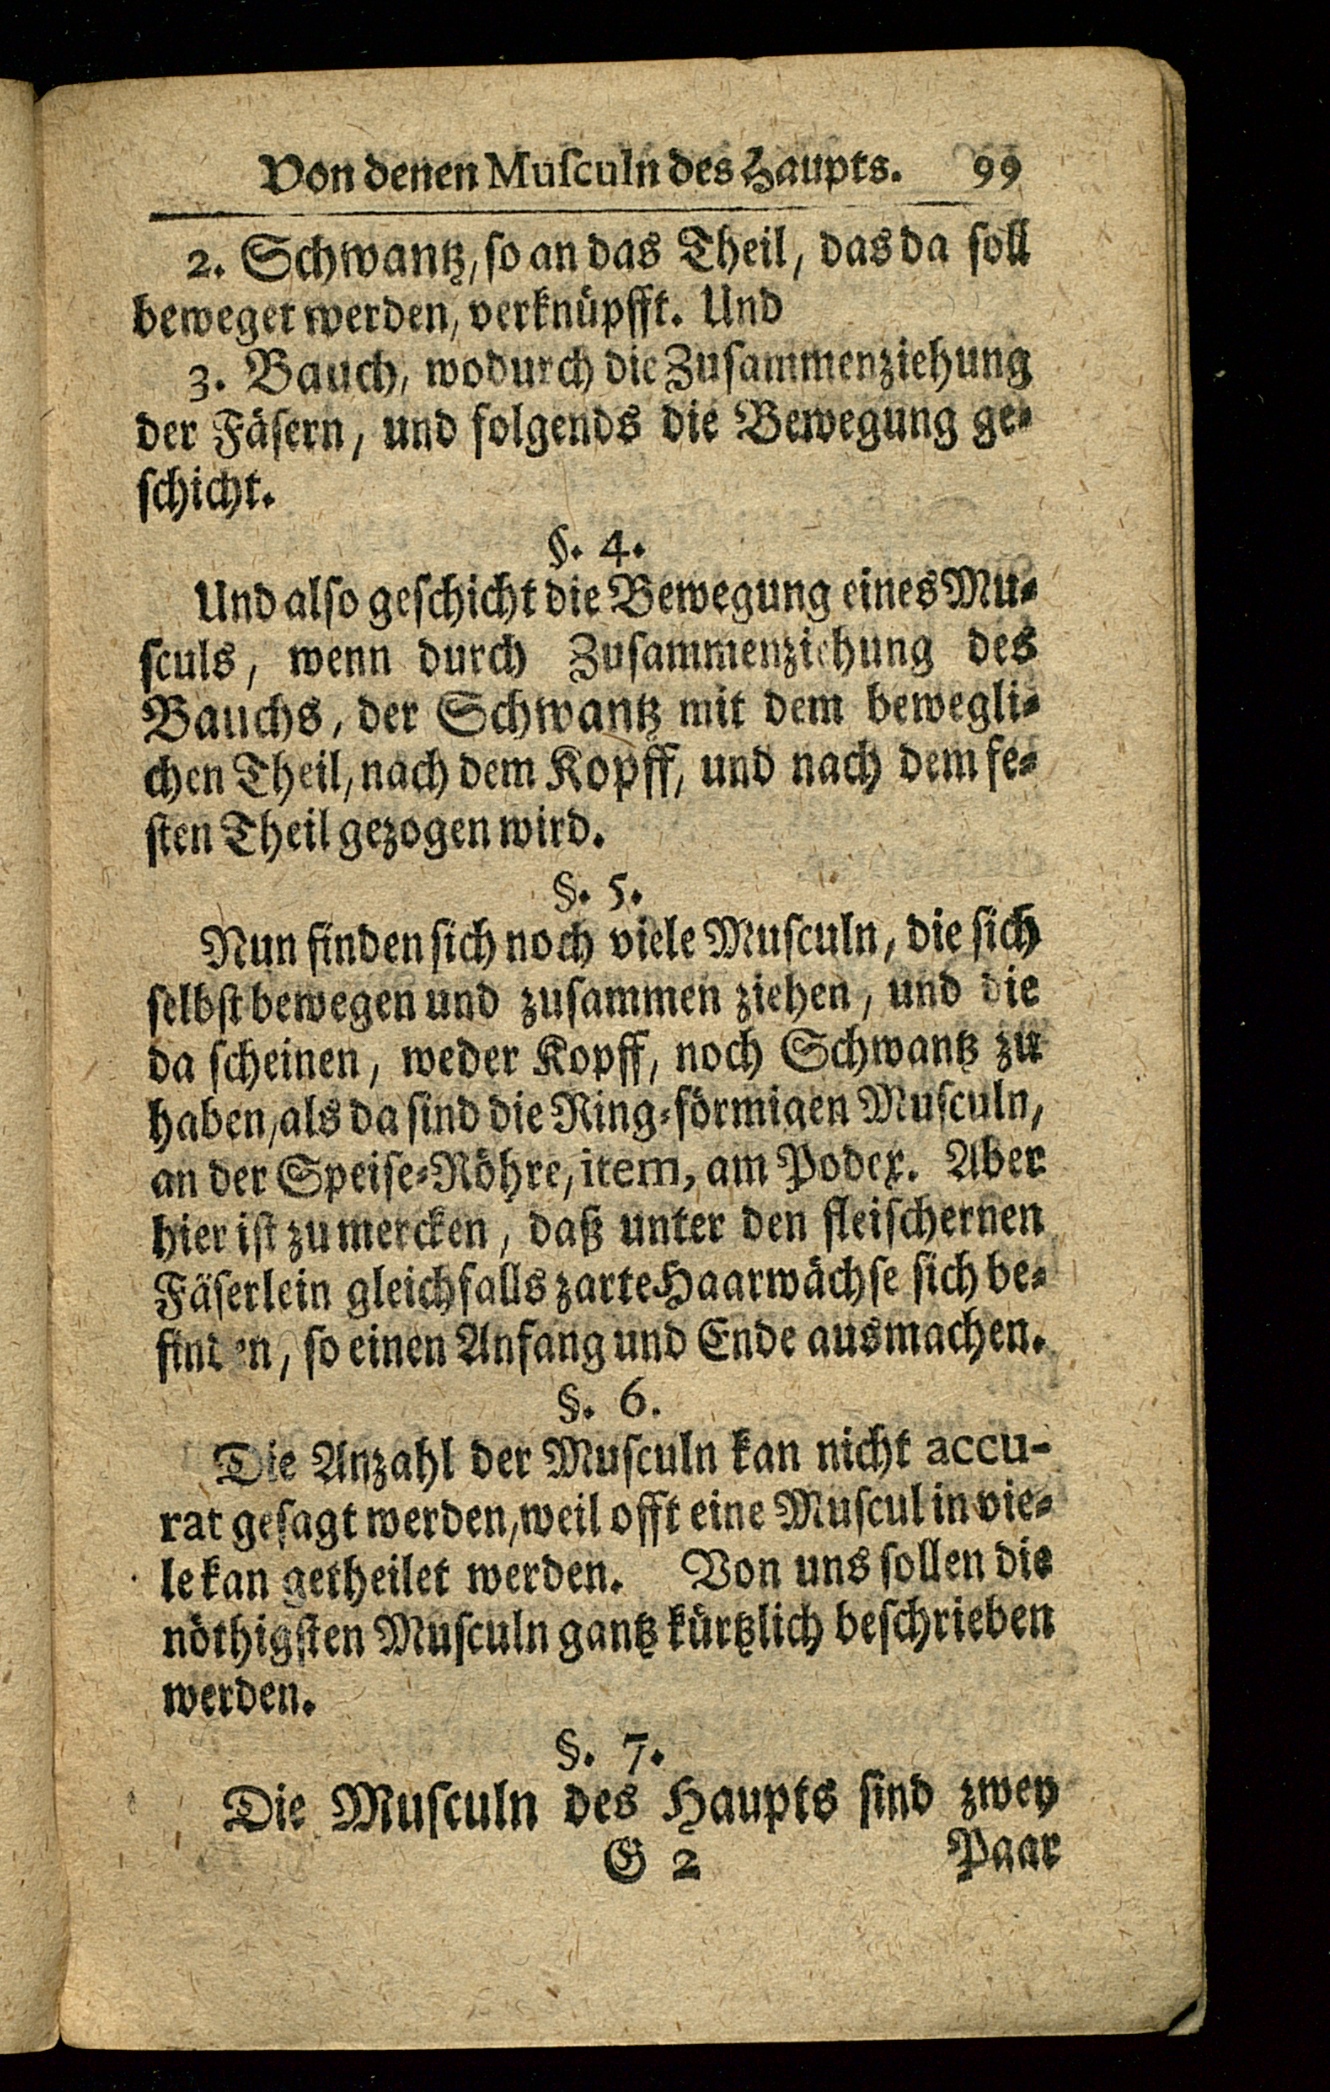 Von denen Muſculn des Haupts. 99
2. Schwantz, ſo an das Theil, das da ſoll
beweget werden, verknüpfft. Und
3. Bauch, wodurch die Zuſammenziehung
der Fäſern, und folgends die Bewegung ge⸗
ſchicht.
§. 4.
Und alſo geſchicht die Bewegung eines Mu⸗
ſculs, wenn durch Zuſammenziehung des
Bauchs, der Schwantz mit dem bewegli⸗
chen Theil, nach dem Kopff, und nach dem fe⸗
ſten Theil gezogen wird.
§. 5.
Nun finden ſich noch viele Muſculn, die ſich
ſelbſt bewegen und zuſammen ziehen, und die
da ſcheinen, weder Kopff, noch Schwantz zu
haben, als da ſind die Ring⸗förmigen Muſculn,
an der Speiſe⸗Röhre, item, am Podex. Aber
hier iſt zu mercken, daß unter den fleiſchernen
Fäſerlein gleichfalls zarte Haarwächſe ſich be⸗
finden, ſo einen Anfang und Ende ausmachen.
§. 6.
Die Anzahl der Muſculn kan nicht accu-
rat geſagt werden, weil offt eine Muſcul in vie⸗
le kan getheilet werden. Von uns ſollen die
nöthigſten Muſculn gantz kürtzlich beſchrieben
werden.
§. 7.
Die Muſculn des Haupts ſind zwey
G 2 Paar